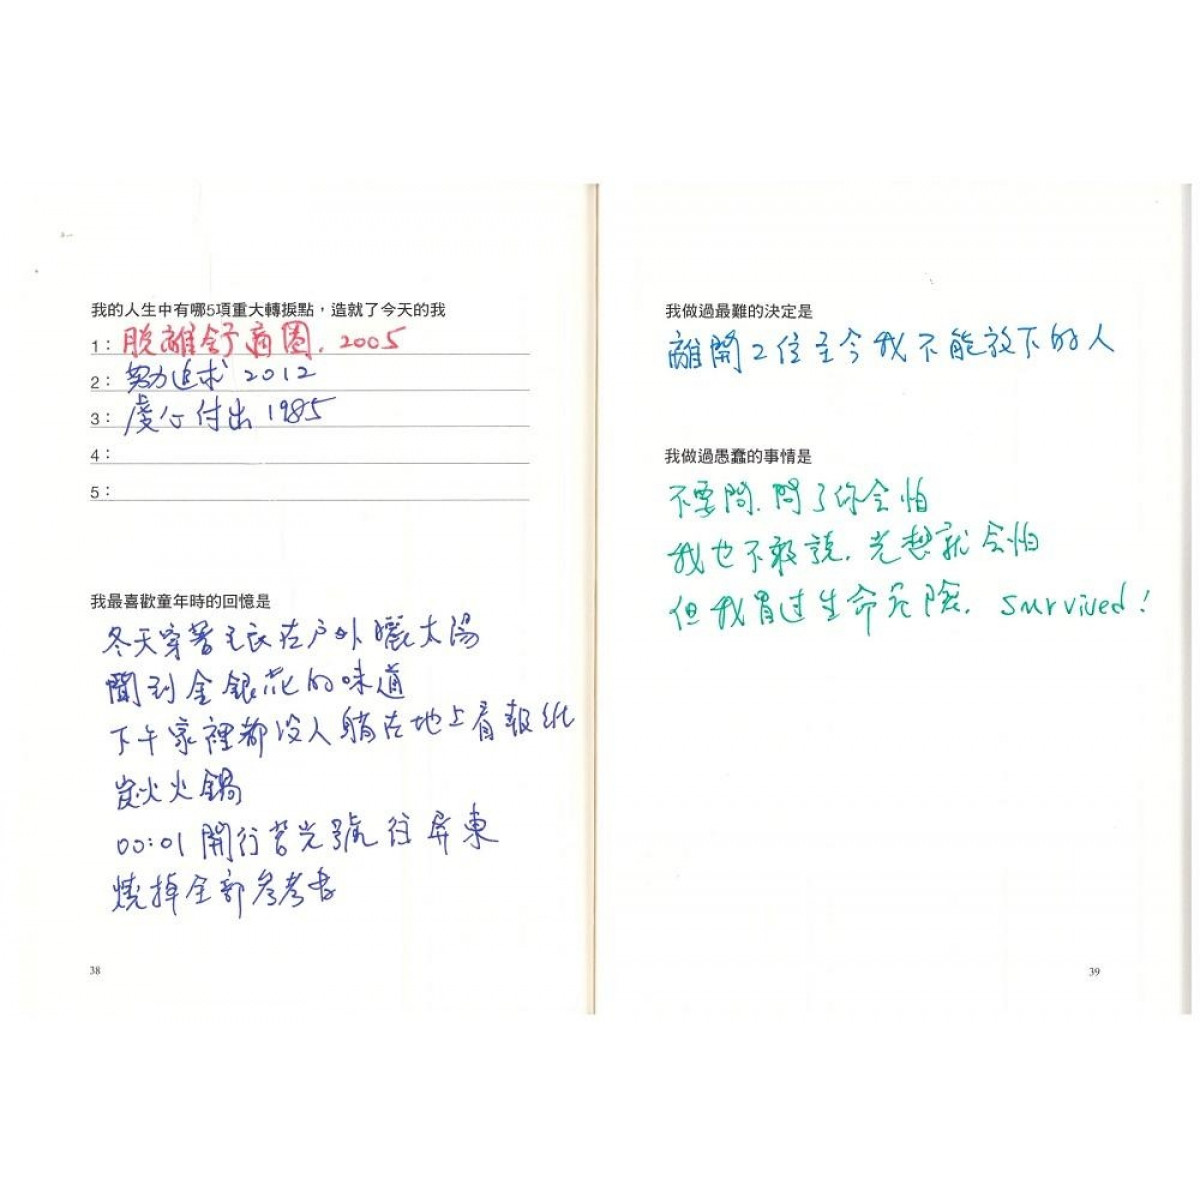 我的人生中有哪5項重大轉捩點，造就了今天的我
1：脫離舒適圈．2005
2：努力追求 2012
3：虔心付出 1985
4：
5：
我最喜歡童年時的回憶是
冬天穿著毛衣在戶外曬太陽
聞到金銀花的味道
下午家裡都沒人躺在地上看報紙
炭火火鍋
00:01 開行莒光號往屏東
燒掉全部參考書
38
我做過最難的決定是
離開2位至今我不能放下的人
我做過愚蠢的事情是
不要問．問了你会怕
我也不敢說．光想就会怕
但我冒过生命危險．survived！
39